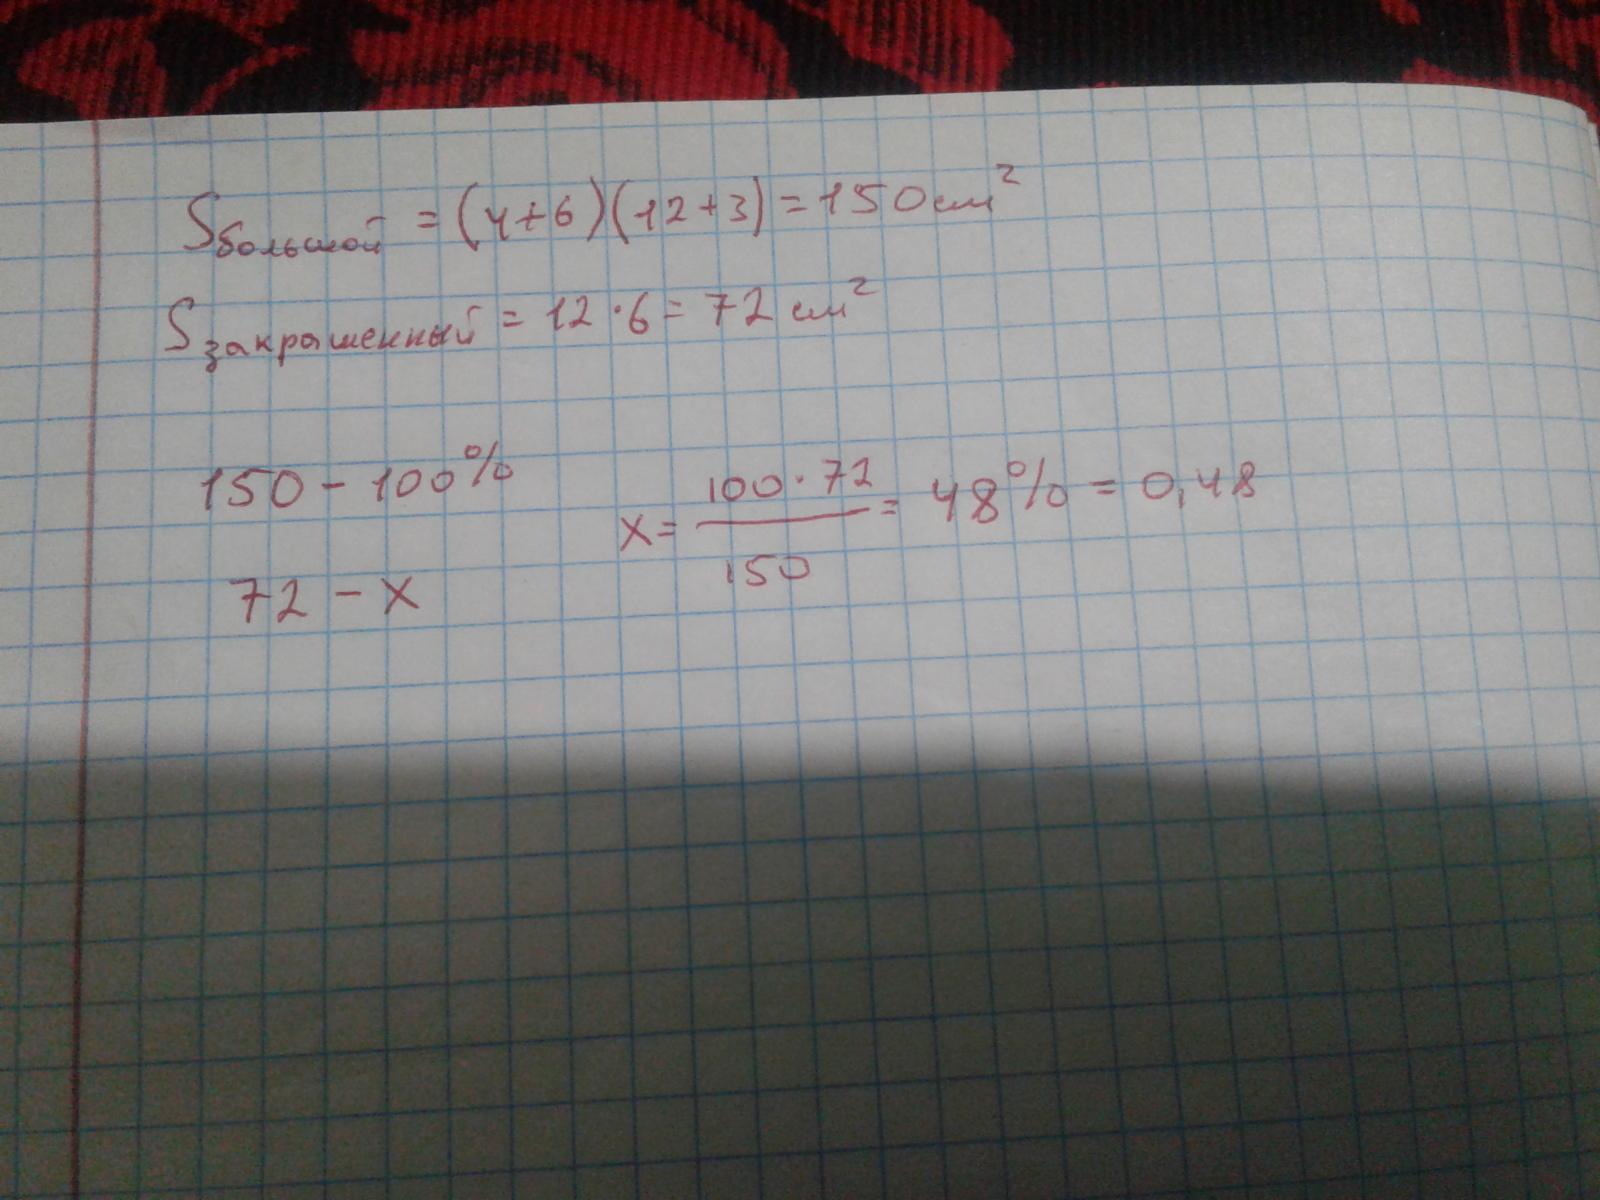 Sбольшой = (4+6)(12+3) = 150 см²
Sзакрашенный = 12·6 = 72 см²
150 – 100%
x = 100·72 / 150 = 48% = 0,48
72 – x